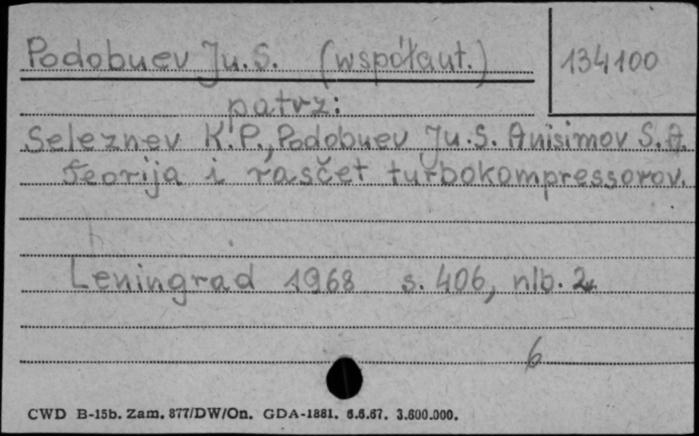 Podobuev Ju. S. (współaut.)
134100
patrz:
Seleznev K.P., Podobuev Ju. S. Anisimov S. A.
Teorija i rasčet turbokompressorov.
Leningrad 1968 s. 406, nlb. 2
6
CWD B-15b. Zam. 877/DW/On. GDA-1881. 6.6.67. 3.600.000.